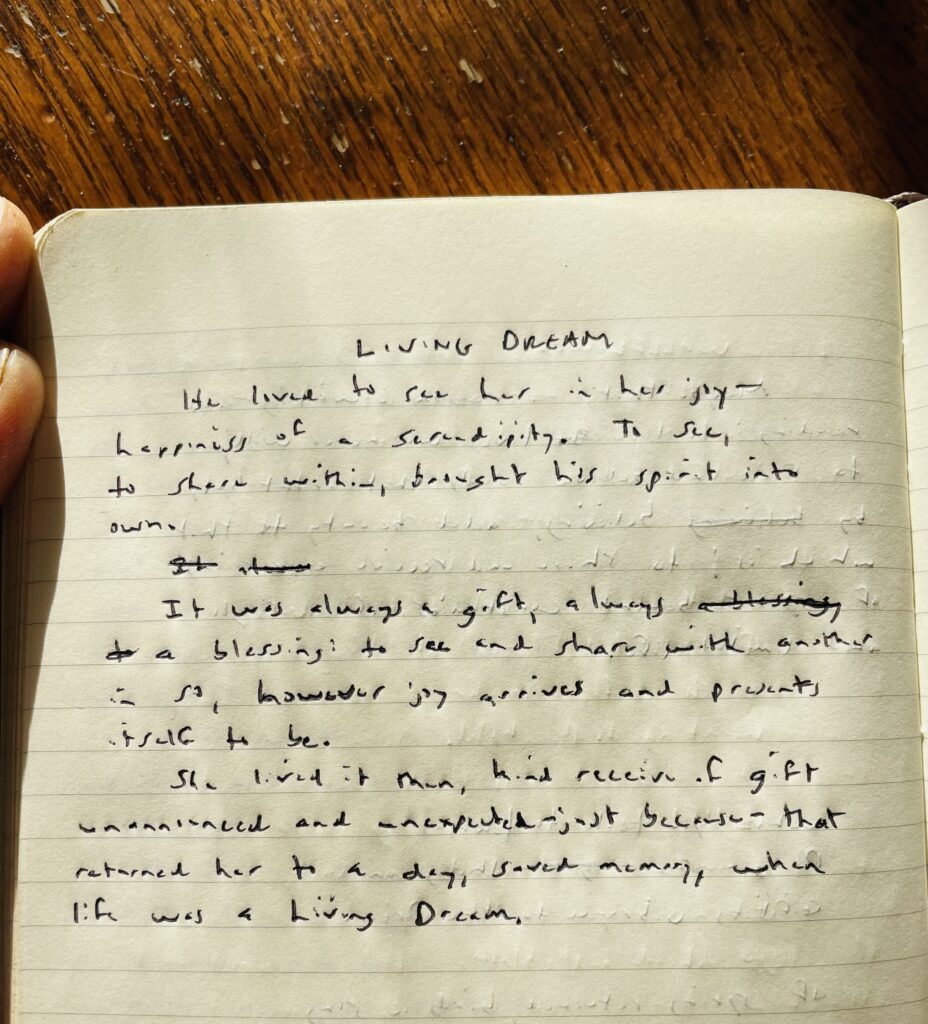 LIVING DREAM
He lived to see her in her joy—
happiness of a serendipity. To see,
to share within, brought his spirit into
own.
It
It was always a gift, always a blessing,
to a blessing: to see and share with another
in so, however joy arrives and presents
itself to be.
She lived it then, kind receive of gift
unannounced and unexpected—just because—that
returned her to a day, saved memory, when
life was a Living Dream.